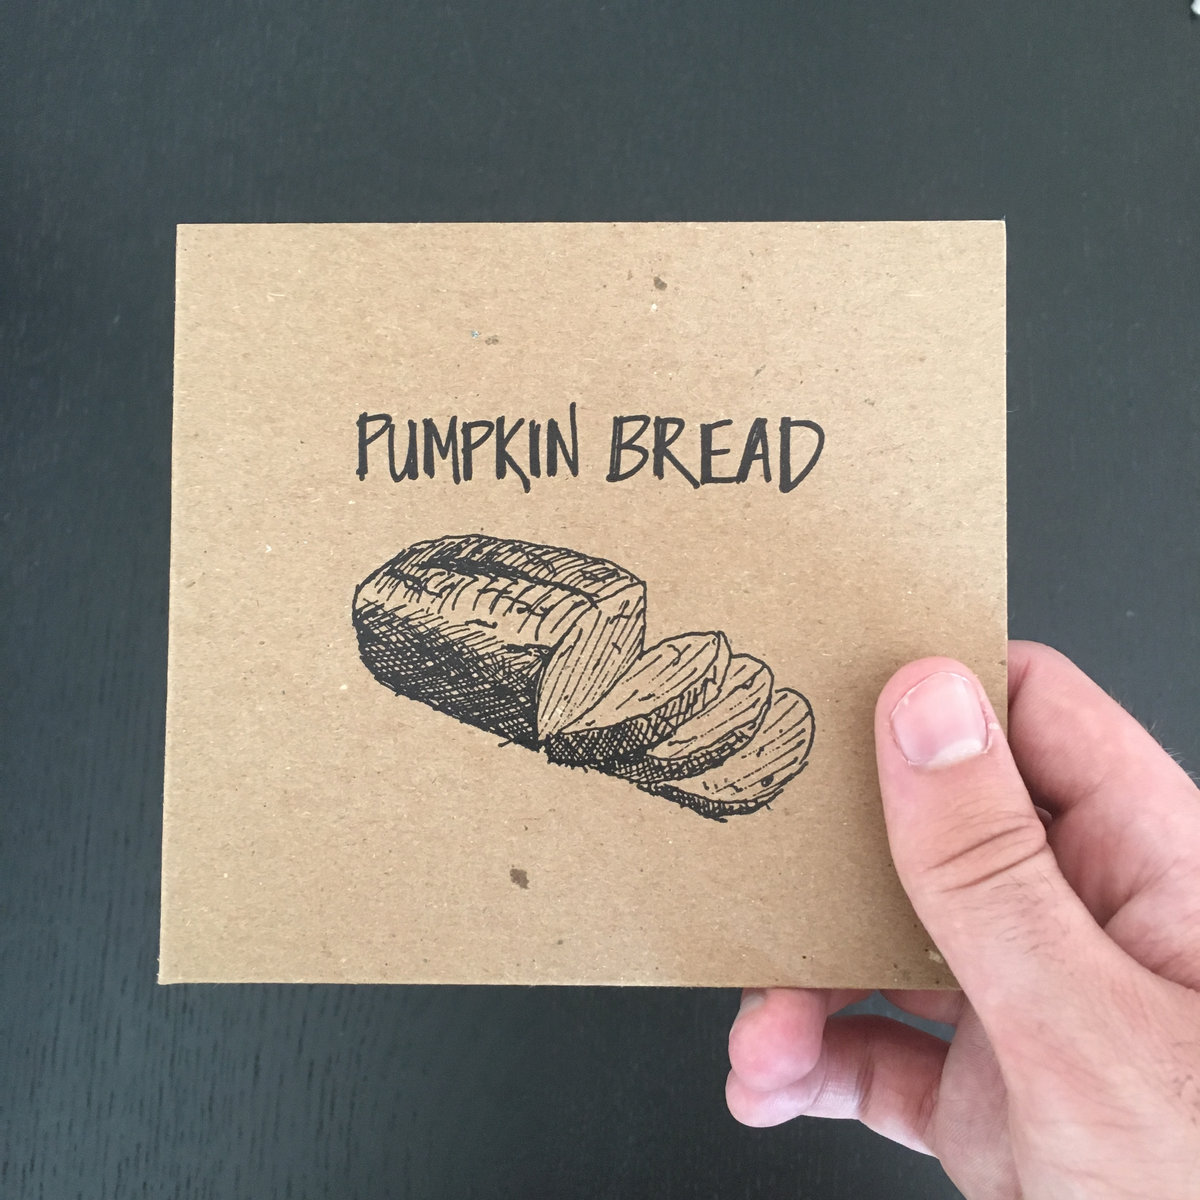 PUMPKIN BREAD